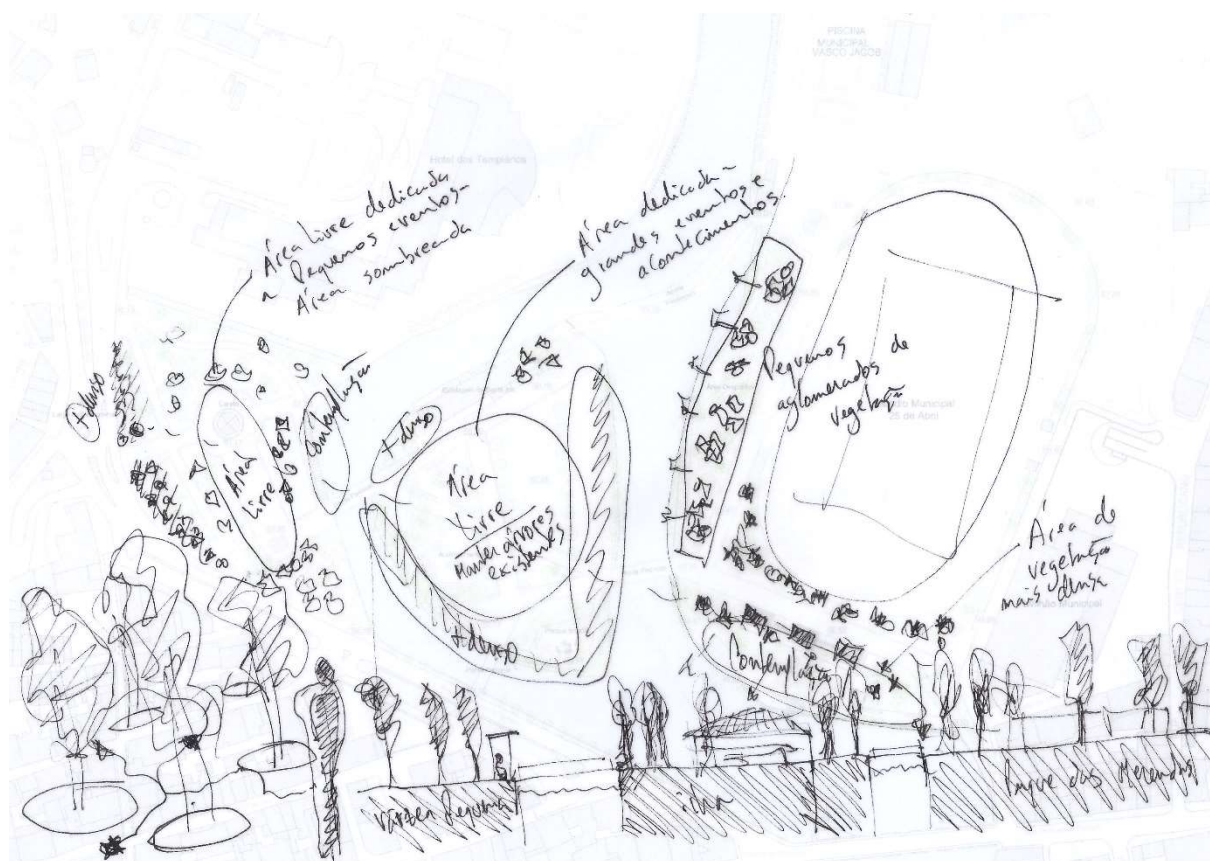 PISCINA
MUNICIPAL
VASCO JACOB
Hotel dos Templários
Área livre dedicada
a Pequenos eventos -
Área sombreada
Área dedicada a
grandes eventos e
acontecimentos
+ denso
Contemplação
+ denso
Área
Livre
Área
Livre
Manter árvores
existentes
+ denso
Pequenos
aglomerados de
vegetação
Municipal
25 de Abril
Área de
vegetação
mais densa
Municipal
Contemplação
Várzea Pequena
ilha
Parque das Merendas